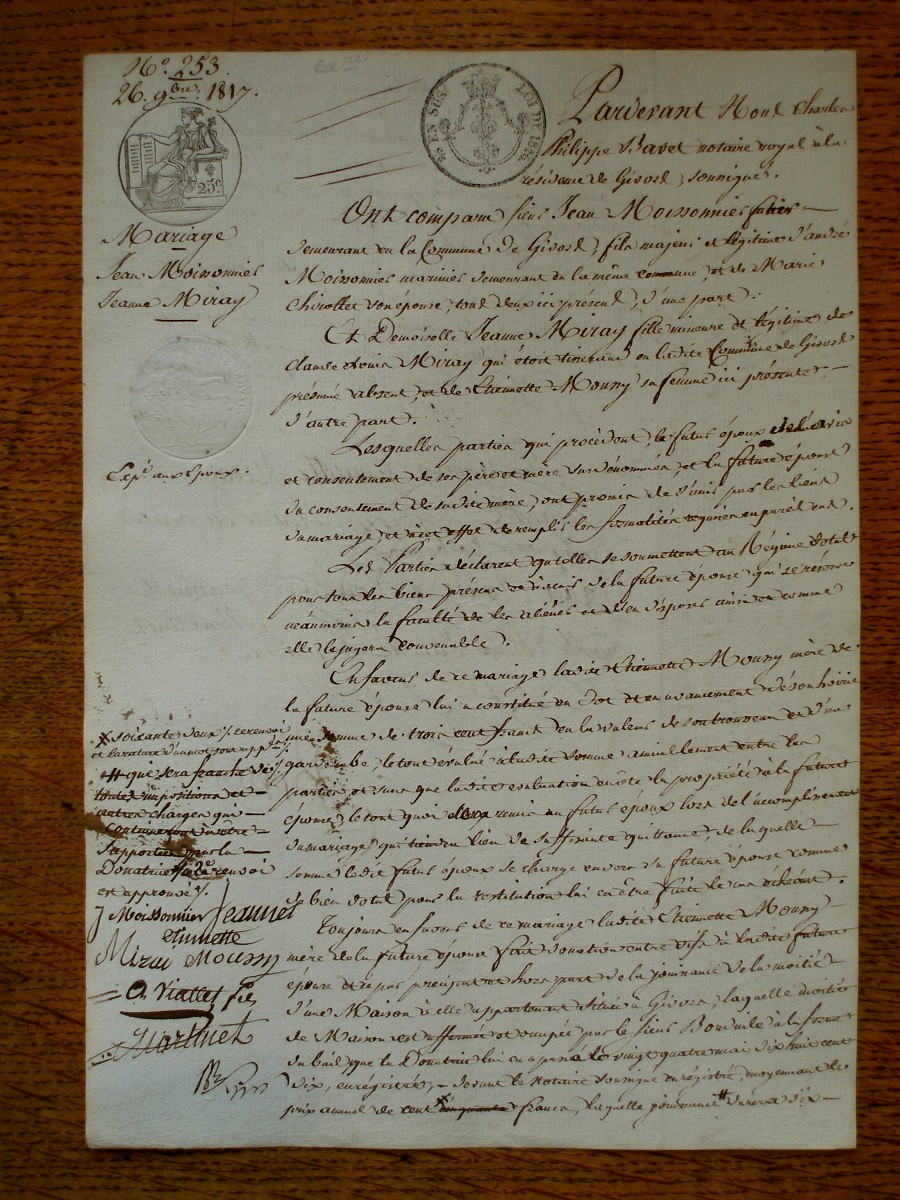 N° 253.
26. 9bre. 1817.
25 EN SUS. LOI DE 1816.
25c.
Mariage
Jean Moissonnier
Jeanne Miray
Expé. aux époux.
Pardevant Nous Charles
Philippe notaire royal à la
résidence de Givors, soussigné.
Ont comparu sieur Jean Moissonnier
demeurant en la Commune de Givors, fils majeur et légitime d'andré
Moissonnier marinier demeurant en la même commune, et de Marie
Chirollet son épouse, tous deux ici présens, d'une part.
Et Demoiselle Jeanne Miray fille mineure et légitime de
Miray qui étoit en ladite Commune de Givors
présumé absent, et de Etiennette Mouny sa femme ici présente,
d'autre part.
Lesquelles parties qui procèdent, le futur époux de l'avis
et consentement de ses père et mère susdénommés, et la future épouse
du consentement de sadite mère, ont promis de s'unir par les liens
du mariage, et à cet effet de remplir les formalités requises au
Les Parties déclarent qu'elles se soumettent au Régime dotal
pour tous les biens présens et à venir de la future épouse qui se réserve
néanmoins la faculté de les aliéner et d'en disposer ainsi et comme
elle le jugera convenable.
En faveur de ce mariage ladite Etiennette Mouny mère de
la future épouse lui a constitué en dot et en avancement de son hoirie
une somme de trois cent francs en la valeur de son trousseau et d'une
garderobe, le tout évalué à ladite somme amiablement entre les
parties et sans que ladite évaluation en ôte la propriété à la future
épouse, le tout qui sera remis au futur époux lors de l'accomplissement
du mariage, qui tiendra lieu de suffisante quittance, de laquelle
somme ledit futur époux se charge envers sa future épouse comme
de bien dotal pour la restitution lui en être faite le cas échéant.
Toujours en faveur de ce mariage ladite Etiennette Mouny
mère de la future épouse fait donation entre vifs à ladite future
épouse et par préciput et hors part de la jouissance de la moitié
d'une Maison à elle appartenant située à Givors, laquelle moitié
de Maison est affermée et occupée par le sieur à la forme
du bail que la Donatrice lui en a passé le vingt quatre mai dix huit cent
dix, enregistré, devant le notaire soussigné enregistré, moyennant le
prix annuel de cent cinquante francs, laquelle jouissance # durera dix
X soixante deux /. ce renvoi
et la rature d'un mot sont
# qui sera franche de
toutes impositions et
autres charges qui
continueront d'être
supportées par la
Donatrice /. 2e renvoi
est approuvé /.
J Moissonnier Jeanne
etiennette
Mirai Mouny
Viallet fils
Martinet